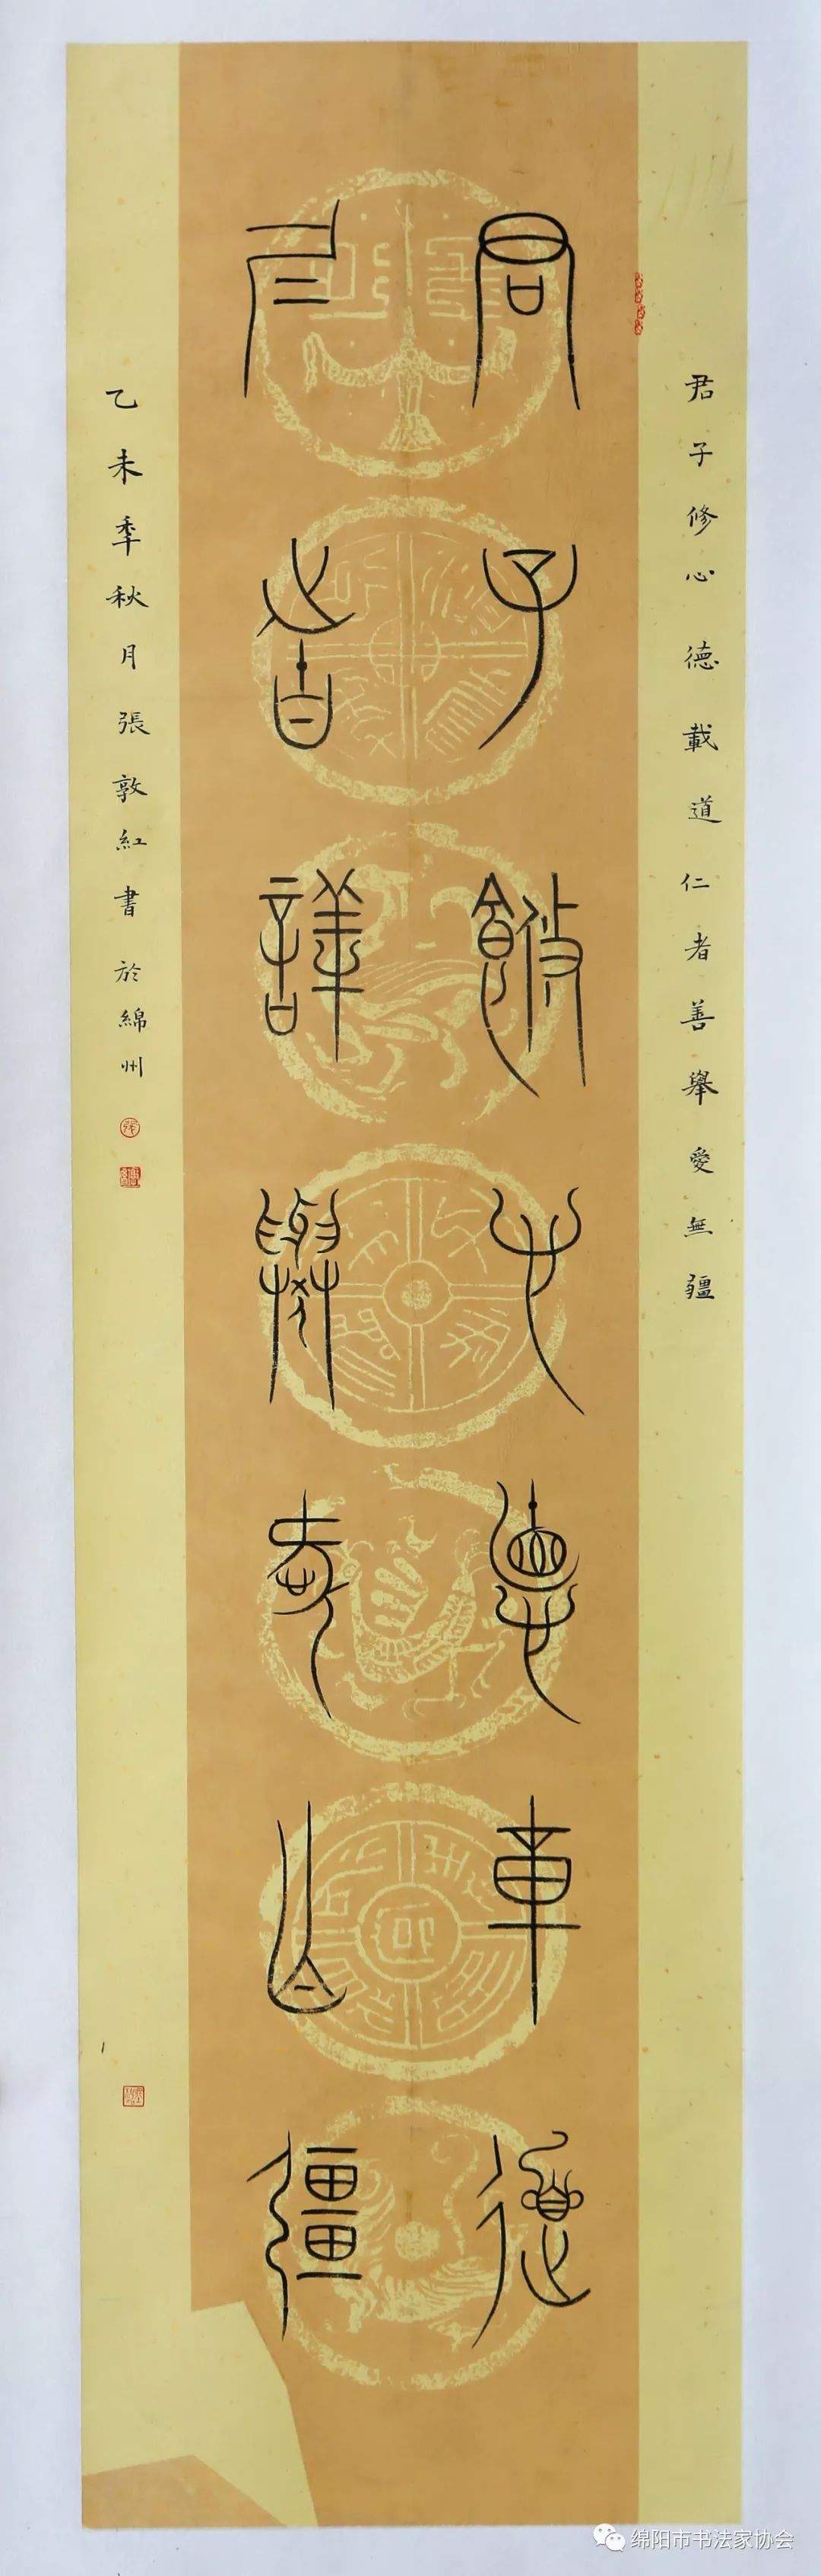 君子修心德載道仁者善舉愛無疆
君子修心德車道
仁者善舉愛亡疆
乙未季秋月張敦紅書於綿州
绵阳市书法家协会